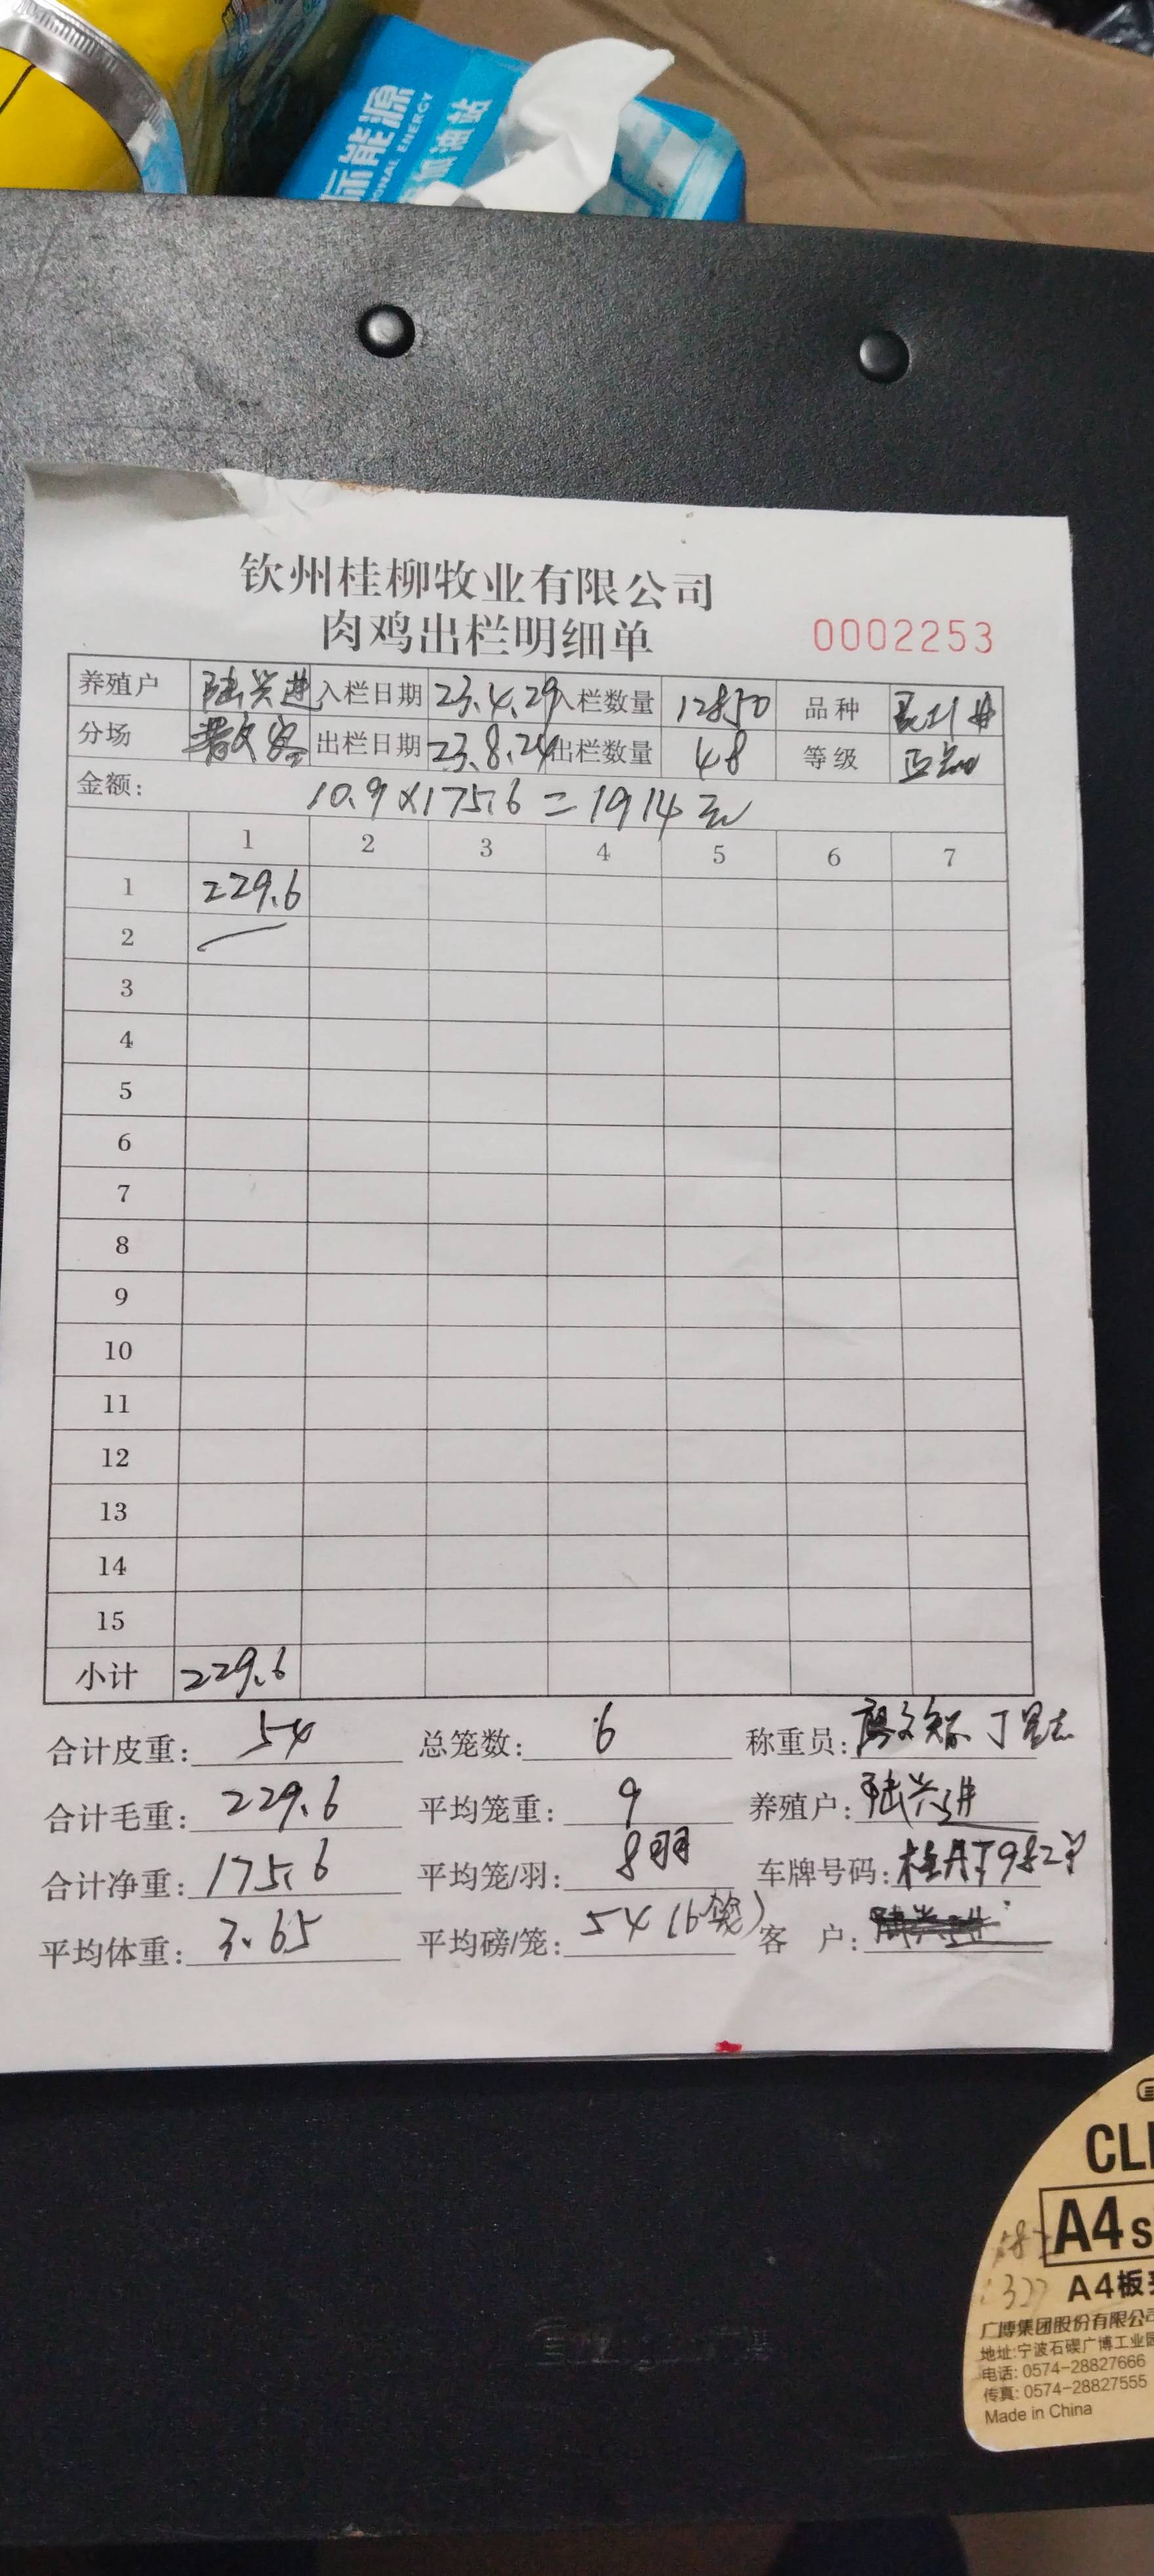 际能源
ONAL ENERGY
加油站
钦州桂柳牧业有限公司
肉鸡出栏明细单
0002253
养殖户 陆兴进 入栏日期 23.4.29 入栏数量 12850 品种
分场 散客 出栏日期 23.8.24 出栏数量 48 等级
金额: 10.9×175.6=1914元
1 2 3 4 5 6 7
1 229.6
2
3
4
5
6
7
8
9
10
11
12
13
14
15
小计 229.6
合计皮重: 54 总笼数: 6 称重员:
合计毛重: 229.6 平均笼重: 9 养殖户: 陆兴进
合计净重: 175.6 平均笼/羽: 8羽 车牌号码:
平均体重: 3.65 平均磅/笼: 54(6笼) 客 户:
CLI
A4 S
A4板夹
广博集团股份有限公司
地址:宁波石碶广博工业园
电话: 0574-28827666
传真: 0574-28827555
Made in China